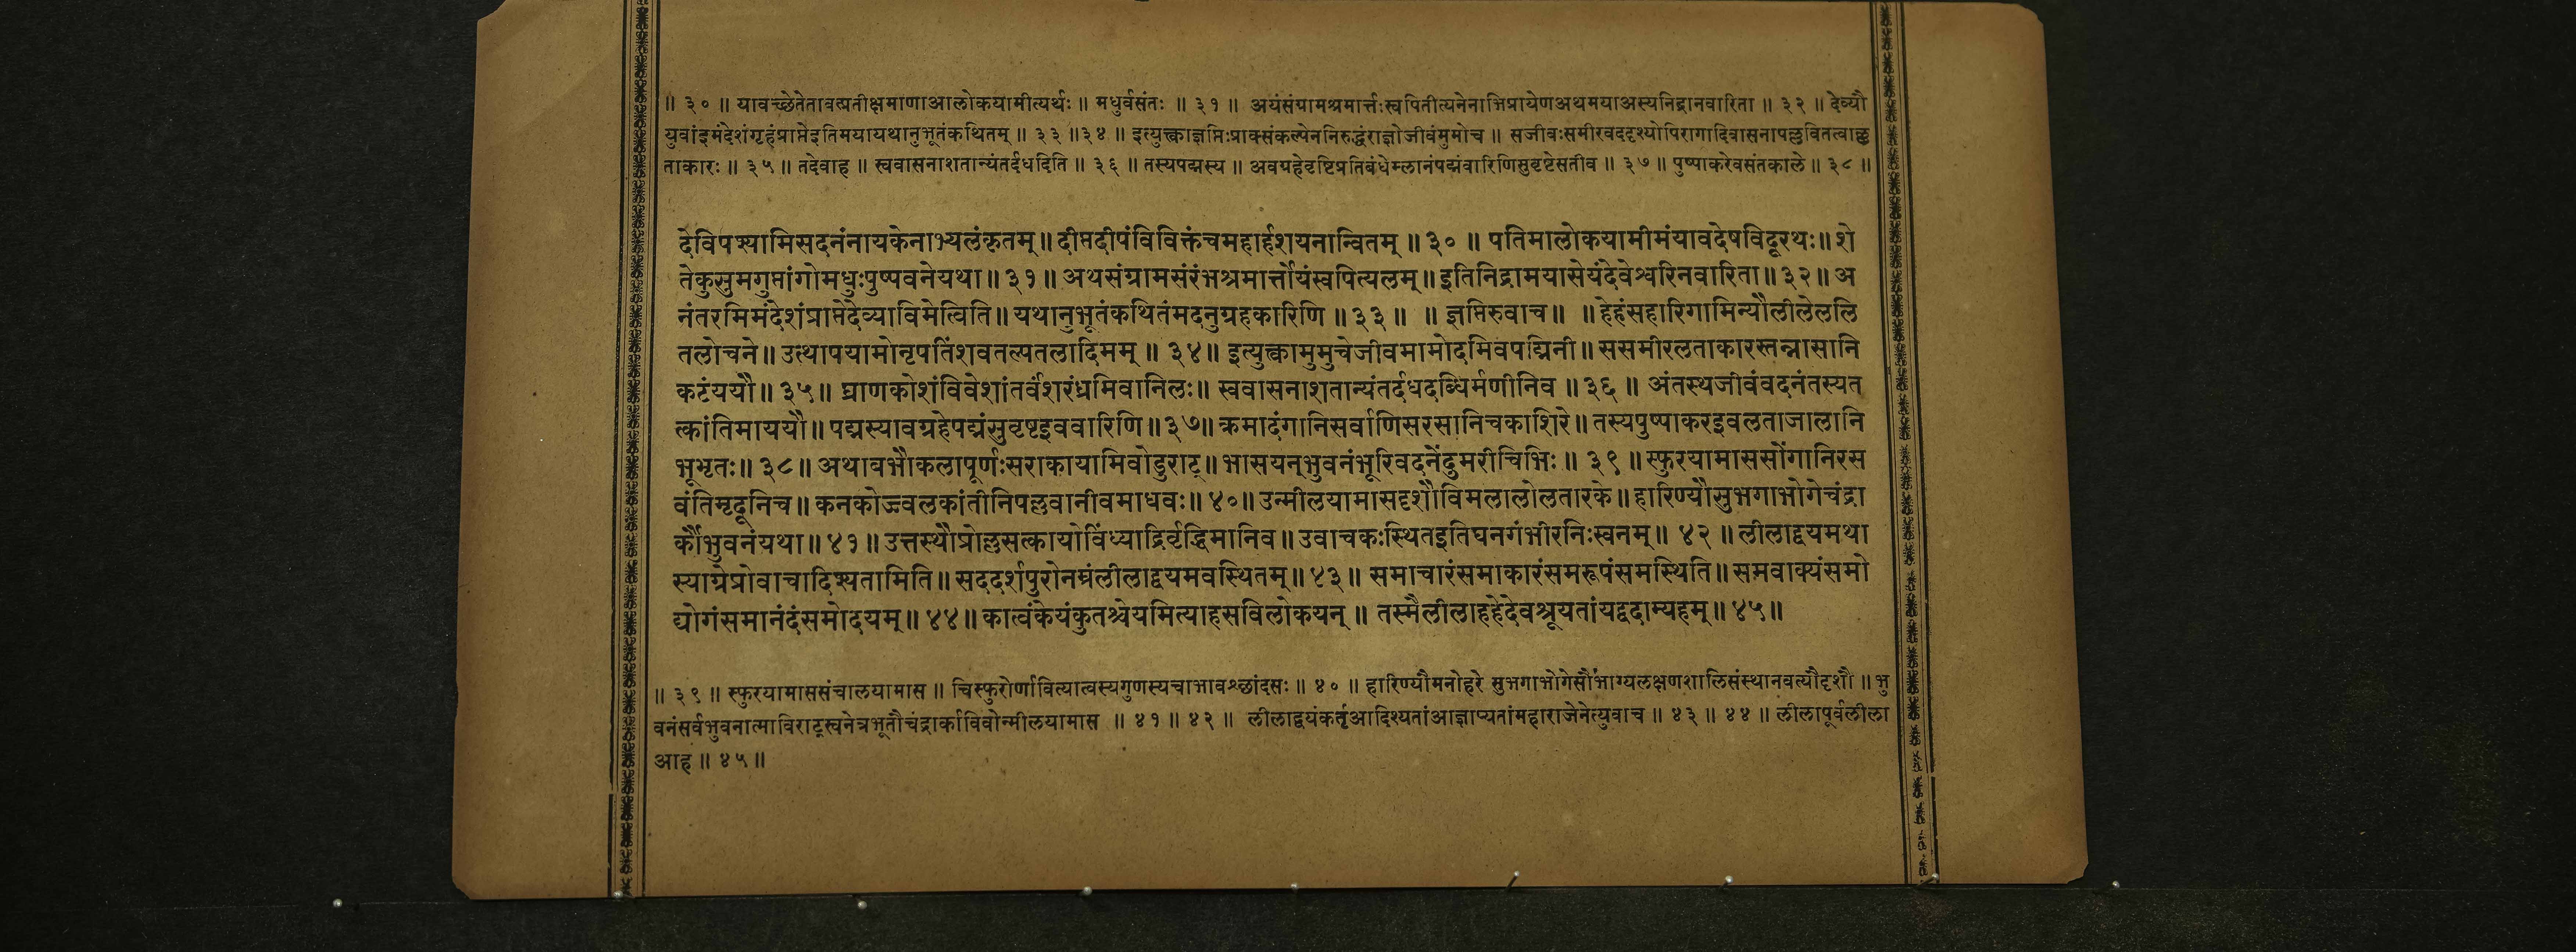 ॥ ३० ॥ यावच्छेतेतावत्प्रतीक्षमाणाआलोकयामीत्यर्थः ॥ मधुर्वसंतः ॥ ३१ ॥ अयंसंग्रामश्रमार्त्तःस्वपितीत्यनेनाभिप्रायेणअथमयाअस्यनिद्रानवारिता ॥ ३२ ॥ देव्यौ
युवांइमंदेशंगृहंप्राप्तेइतिमयायथानुभूतंकथितम् ॥ ३३ ॥३४ ॥ इत्युत्त्काज्ञप्तिःप्राक्संकल्पेननिरुद्धंराज्ञोजीवंमुमोच ॥ सजीवःसमीरवददृश्योपिरागादिवासनापल्लवितत्वाल्ल
ताकारः ॥ ३५ ॥ तदेवाह ॥ स्ववासनाशतान्यंतर्दधदिति ॥ ३६ ॥ तस्यपद्मस्य ॥ अवग्रहेवृष्टिप्रतिबंधेम्लानंपद्मंवारिणिसुवृष्टेसतीव ॥ ३७ ॥ पुष्पाकरेवसंतकाले ॥ ३८ ॥
देविपश्यामिसदनंनायकेनाभ्यलंकृतम् ॥ दीप्तदीपंविविक्तंचमहार्हशयनान्वितम् ॥ ३० ॥ पतिमालोकयामीमंयावदेषविदूरथः ॥ शे
तेकुसुमगुप्तांगोमधुःपुष्पवनेयथा ॥ ३१ ॥ अथसंग्रामसंरंभश्रमार्त्तोयंस्वपित्यलम् ॥ इतिनिद्रामयासेयंदेवेश्वरिनवारिता ॥ ३२ ॥ अ
नंतरमिमंदेशंप्राप्तेदेव्याविमेत्विति ॥ यथानुभूतंकथितंमदनुग्रहकारिणि ॥ ३३ ॥ ॥ ज्ञप्तिरुवाच ॥ ॥ हेहंसहारिगामिन्यौलीलेललि
तलोचने ॥ उत्थापयामोनृपतिंशवतल्पतलादिमम् ॥ ३४ ॥ इत्युत्त्कामुमुचेजीवमामोदमिवपद्मिनी ॥ ससमीरलताकारस्तन्नासानि
कटंययौ ॥ ३५ ॥ घ्राणकोशंविवेशांतर्वंशरंध्रमिवानिलः ॥ स्ववासनाशतान्यंतर्दधदब्धिर्मणीनिव ॥ ३६ ॥ अंतस्थजीवंवदनंतस्यत
त्कांतिमाययौ ॥ पद्मस्यावग्रहेपद्मंसुवृष्टइववारिणि ॥ ३७ ॥ क्रमादंगानिसर्वाणिसरसानिचकाशिरे ॥ तस्यपुष्पाकरइवलताजालानि
भूभृतः ॥ ३८ ॥ अथाबभौकलापूर्णःसराकायामिवोडुराट् ॥ भासयन्भुवनंभूरिवदनेंदुमरीचिभिः ॥ ३९ ॥ स्फुरयामाससोंगानिरस
वंतिमृदूनिच ॥ कनकोज्ज्वलकांतीनिपल्लवानीवमाधवः ॥ ४० ॥ उन्मीलयामासदृशौविमलालोलतारके ॥ हारिण्यौसुभगाभोगेचंद्रा
र्कौभुवनंयथा ॥ ४१ ॥ उत्तस्थौप्रोल्लसत्कायोविंध्याद्रिर्वृद्धिमानिव ॥ उवाचकःस्थितइतिघनगंभीरनिःस्वनम् ॥ ४२ ॥ लीलाद्वयमथा
स्याग्रेप्रोवाचादिश्यतामिति ॥ सददर्शपुरोनम्रंलीलाद्वयमवस्थितम् ॥ ४३ ॥ समाचारंसमाकारंसमरूपंसमस्थिति ॥ समवाक्यंसमो
द्योगंसमानंदंसमोदयम् ॥ ४४ ॥ कात्वंकेयंकुतश्चेयमित्याहसविलोकयन् ॥ तस्मैलीलाहहेदेवश्रूयतांयद्वदाम्यहम् ॥ ४५ ॥
॥ ३९ ॥ स्फुरयामाससंचालयामास ॥ चिस्फुरोर्णावित्यात्वस्यगुणस्यचाभावश्छांदसः ॥ ४० ॥ हारिण्यौमनोहरे सुभगाभोगेसौभाग्यलक्षणशालिसंस्थानवत्यौदृशौ ॥ भु
वनंसर्वभुवनात्माविराट्स्वनेत्रभूतौचंद्रार्काविवोन्मीलयामास ॥ ४१ ॥ ४२ ॥ लीलाद्वयंकर्तृआदिश्यतांआज्ञाप्यतांमहाराजेनेत्युवाच ॥ ४३ ॥ ४४ ॥ लीलापूर्वलीला
आह ॥ ४५ ॥